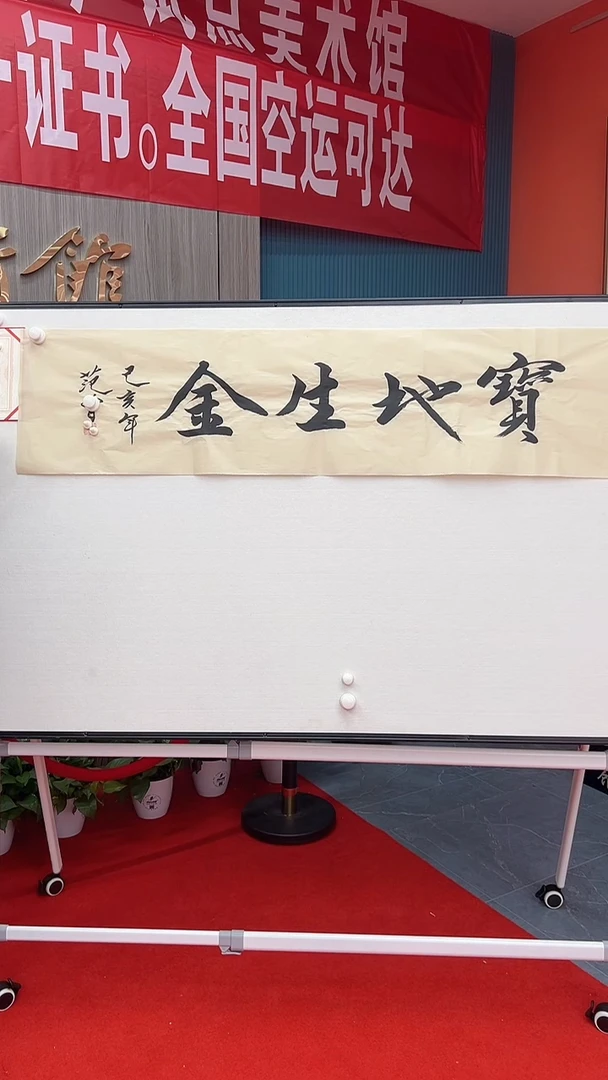 试点美术馆
证书。全国空运可达
館
寶地生金
己亥年
范